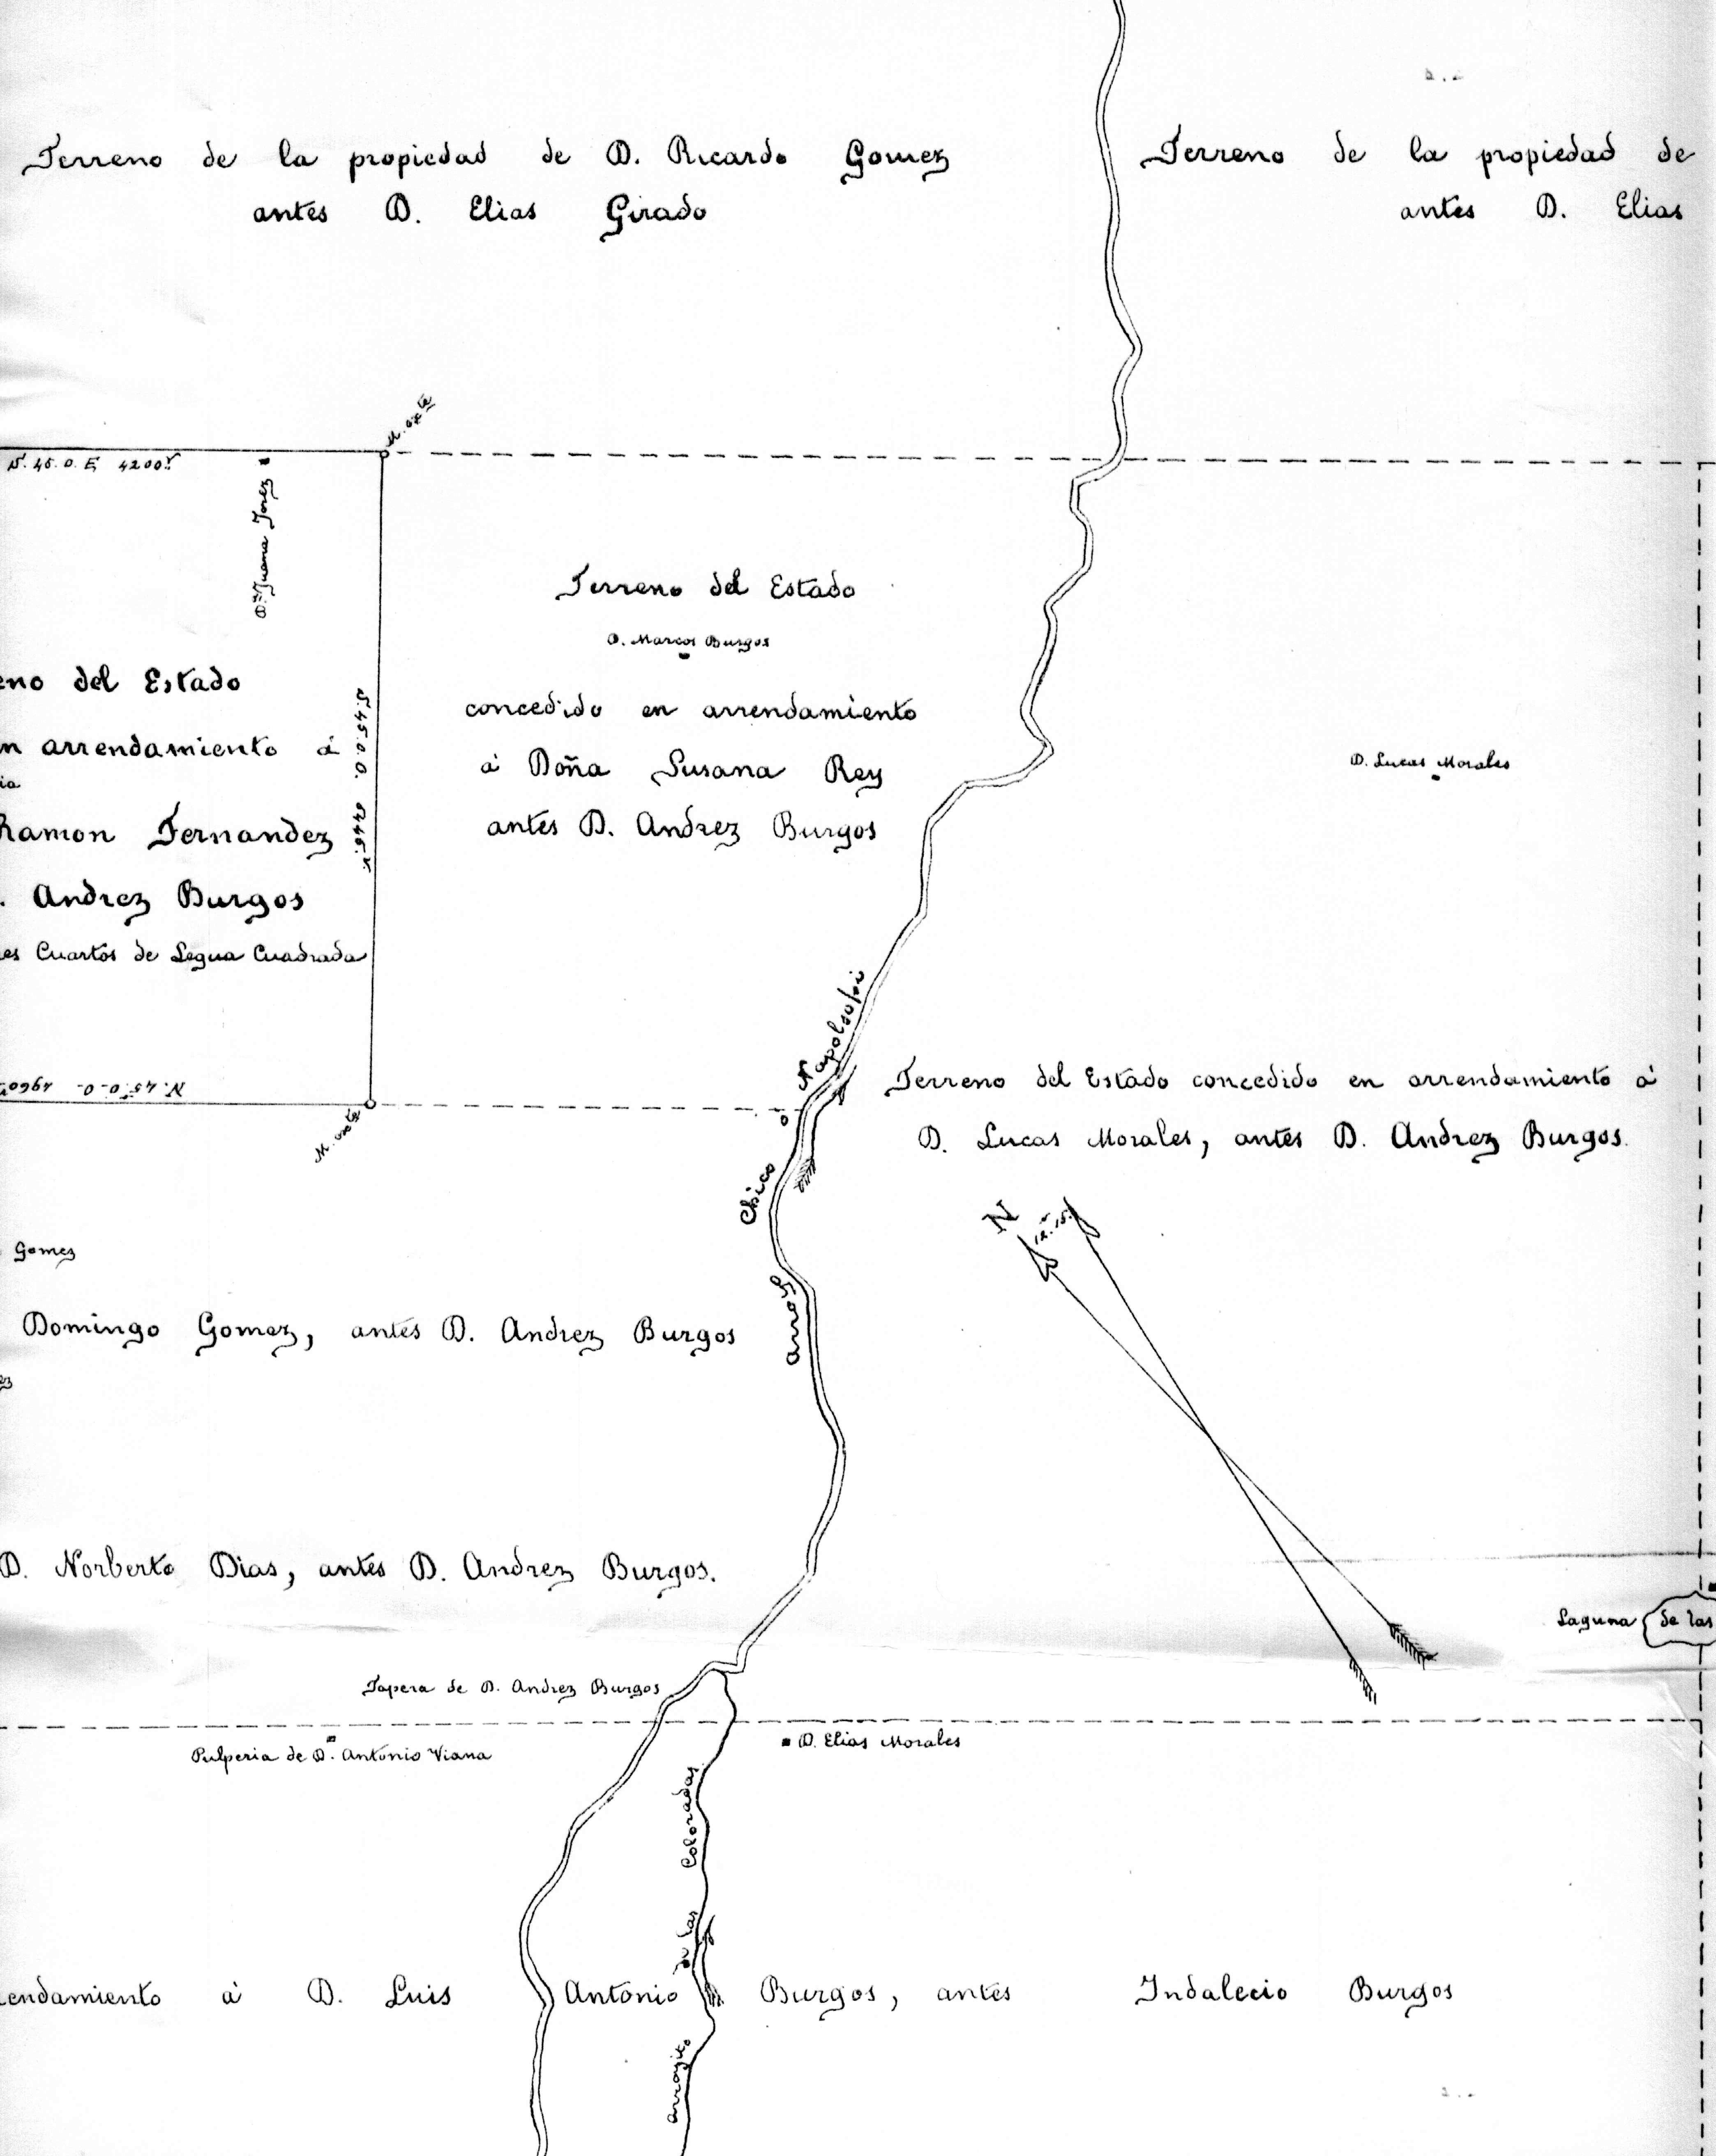 Terreno de la propiedad de D. Ricardo Gomez
antes D. Elias Girado
Terreno de la propiedad de
antes D. Elias
M. exte
S. 45. 0. E. 4200 v
Da. Juana Jerez
Terreno del Estado
D. Marcos Burgos
concedido en arrendamiento
á Doña Susana Rey
antes D. Andrez Burgos
eno del Estado
n arrendamiento á
ia
Ramon Fernandez
. Andrez Burgos
es Cuartos de Legua Cuadrada
S. 45. 0. O.
D. Lucas Morales
N. 45. 0-0- 4960
M. exte
Terreno del Estado concedido en arrendamiento á
D. Lucas Morales, antes D. Andrez Burgos.
Arroy Chico ó Napolsofi
N
12. 15.
Gomez
Domingo Gomez, antes D. Andrez Burgos
ez
D. Norberto Dias, antes D. Andrez Burgos.
Laguna de las
Tapera de D. Andrez Burgos
Pulperia de D. Antonio Viana
D. Elias Morales
arroyito de las Coloradas
endamiento á D. Luis Antonio Burgos, antes Indalecio Burgos